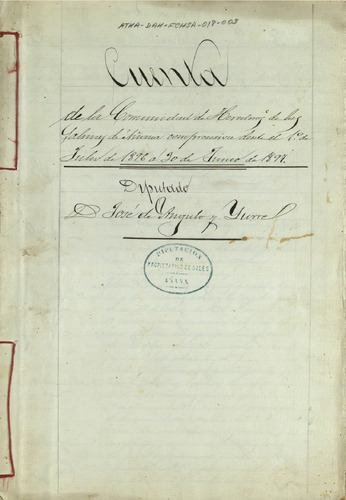 ATHA-DAH-FCHSA-018-003
Cuenta
de la Comunidad de Herederos de las
Salinas de Añana comprensiva desde el 1º de
Julio de 1896 a 30 de Junio de 1897.
Diputado
D. José de Angulo y Yurre
DIPUTACION
DE
PROPIETARIOS DE SALES
AÑANA